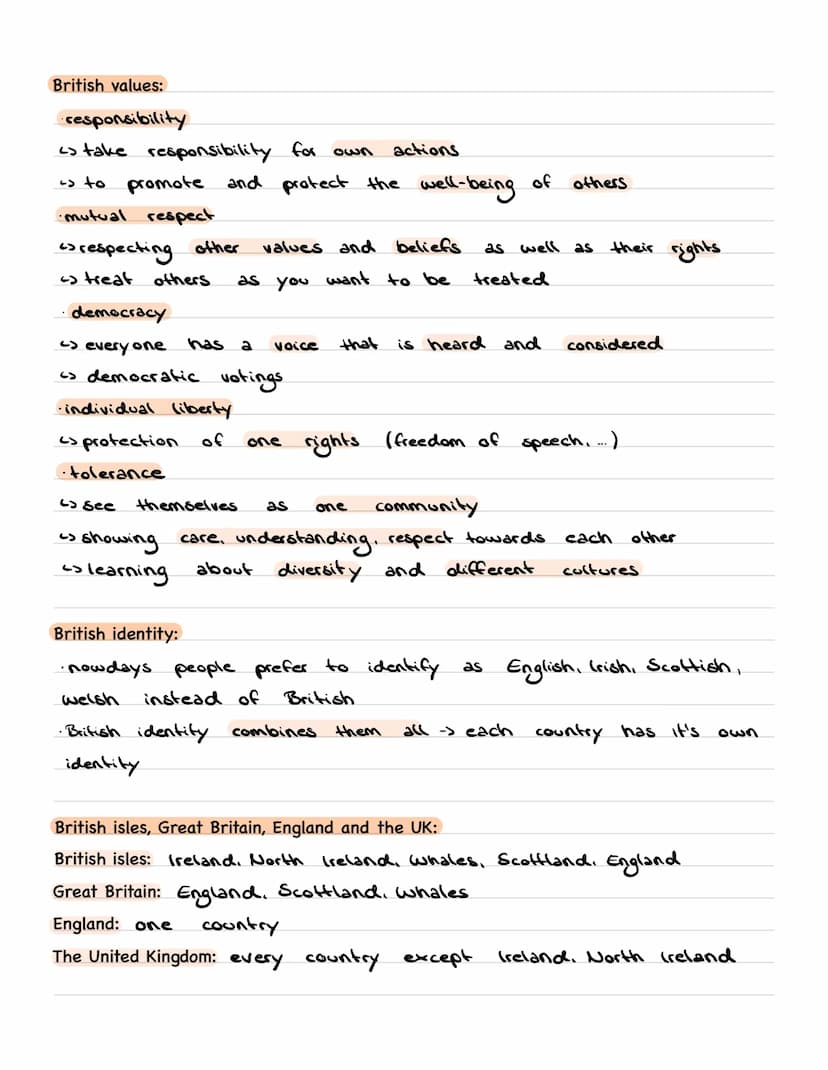 British values:
·responsibility
↳ take responsibility for own actions
↳ to promote and protect the well-being of others
·mutual respect
↳ respecting other values and beliefs as well as their rights
↳ treat others as you want to be treated
· democracy
↳ everyone has a voice that is heard and considered
↳ democratic votings
·individual liberty
↳ protection of one rights (freedom of speech, ...)
·tolerance
↳ see themselves as one community
↳ showing care, understanding, respect towards each other
↳ learning about diversity and different cultures
British identity:
·nowdays people prefer to identify as English, Irish, Scottish,
Welsh instead of British
·British identity combines them all -> each country has it's own
identity
British isles, Great Britain, England and the UK:
British isles: Ireland, North Ireland, Whales, Scottland, England
Great Britain: England, Scottland, Whales
England: one country
The United Kingdom: every country except Ireland, North Ireland